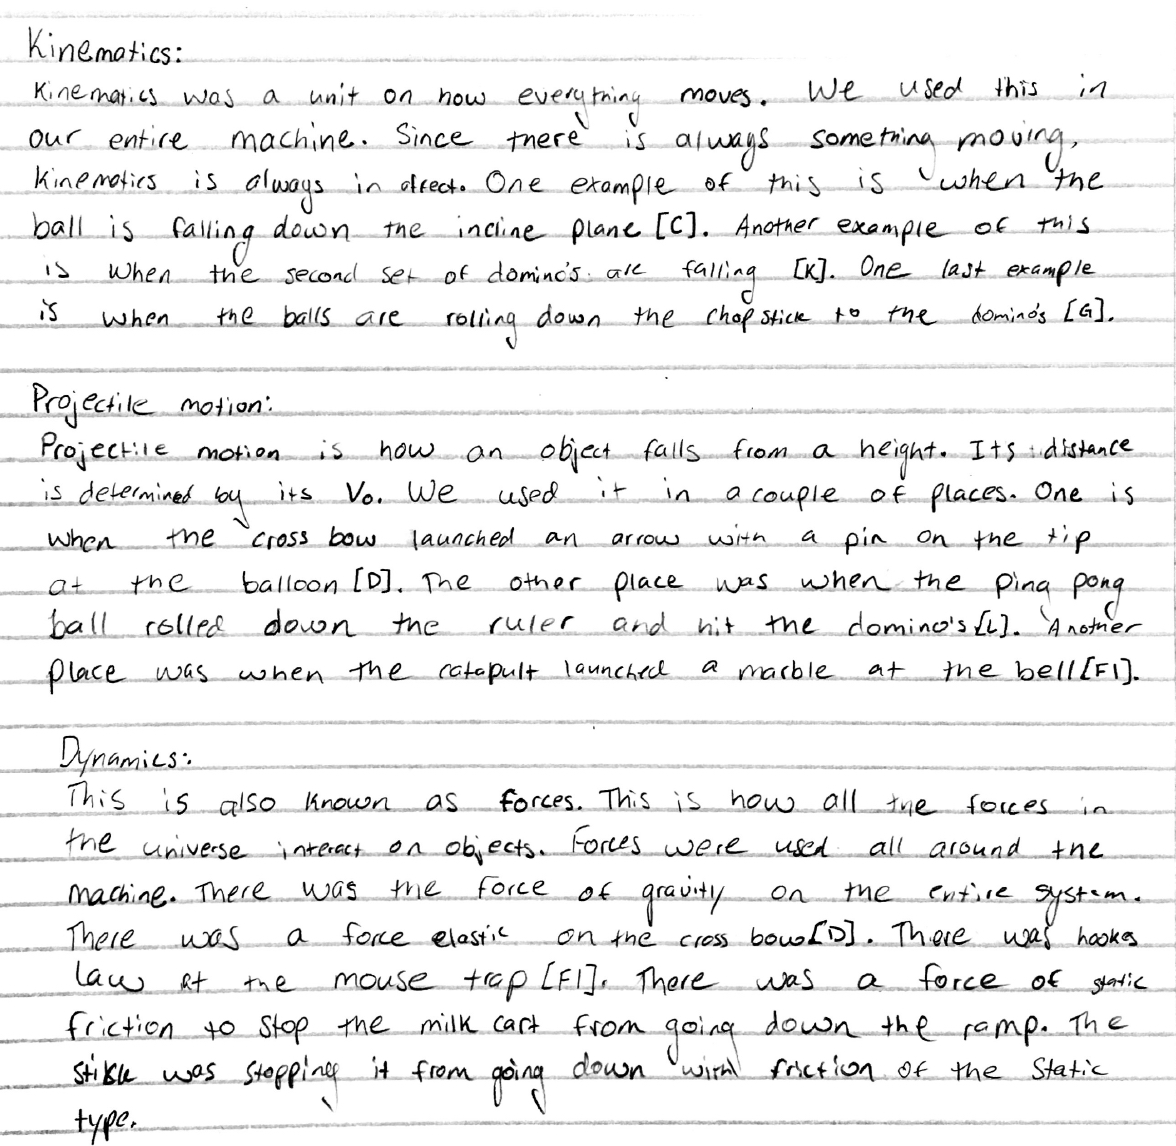 Kinematics:
Kinematics was a unit on how everything moves. We used this in
our entire machine. Since there is always something moving,
Kinematics is always in affect. One example of this is when the
ball is falling down the incline plane [C]. Another example of this
is when the second set of domino's are falling [K]. One last example
is when the balls are rolling down the chop stick to the domino's [G].
Projectile motion:
Projectile motion is how an object falls from a height. Its distance
is determined by its Vo. We used it in a couple of places. One is
when the cross bow launched an arrow with a pin on the tip
at the balloon [D]. The other place was when the ping pong
ball rolled down the ruler and hit the domino's [L]. Another
place was when the catapult launched a marble at the bell [F1].
Dynamics:
This is also known as forces. This is how all the forces in
the universe interact on objects. Forces were used all around the
machine. There was the force of gravity on the entire system.
There was a force elastic on the cross bow [D]. There was hookes
law at the mouse trap [F1]. There was a force of static
friction to stop the milk cart from going down the ramp. The
stick was stopping it from going down with friction of the static
type.